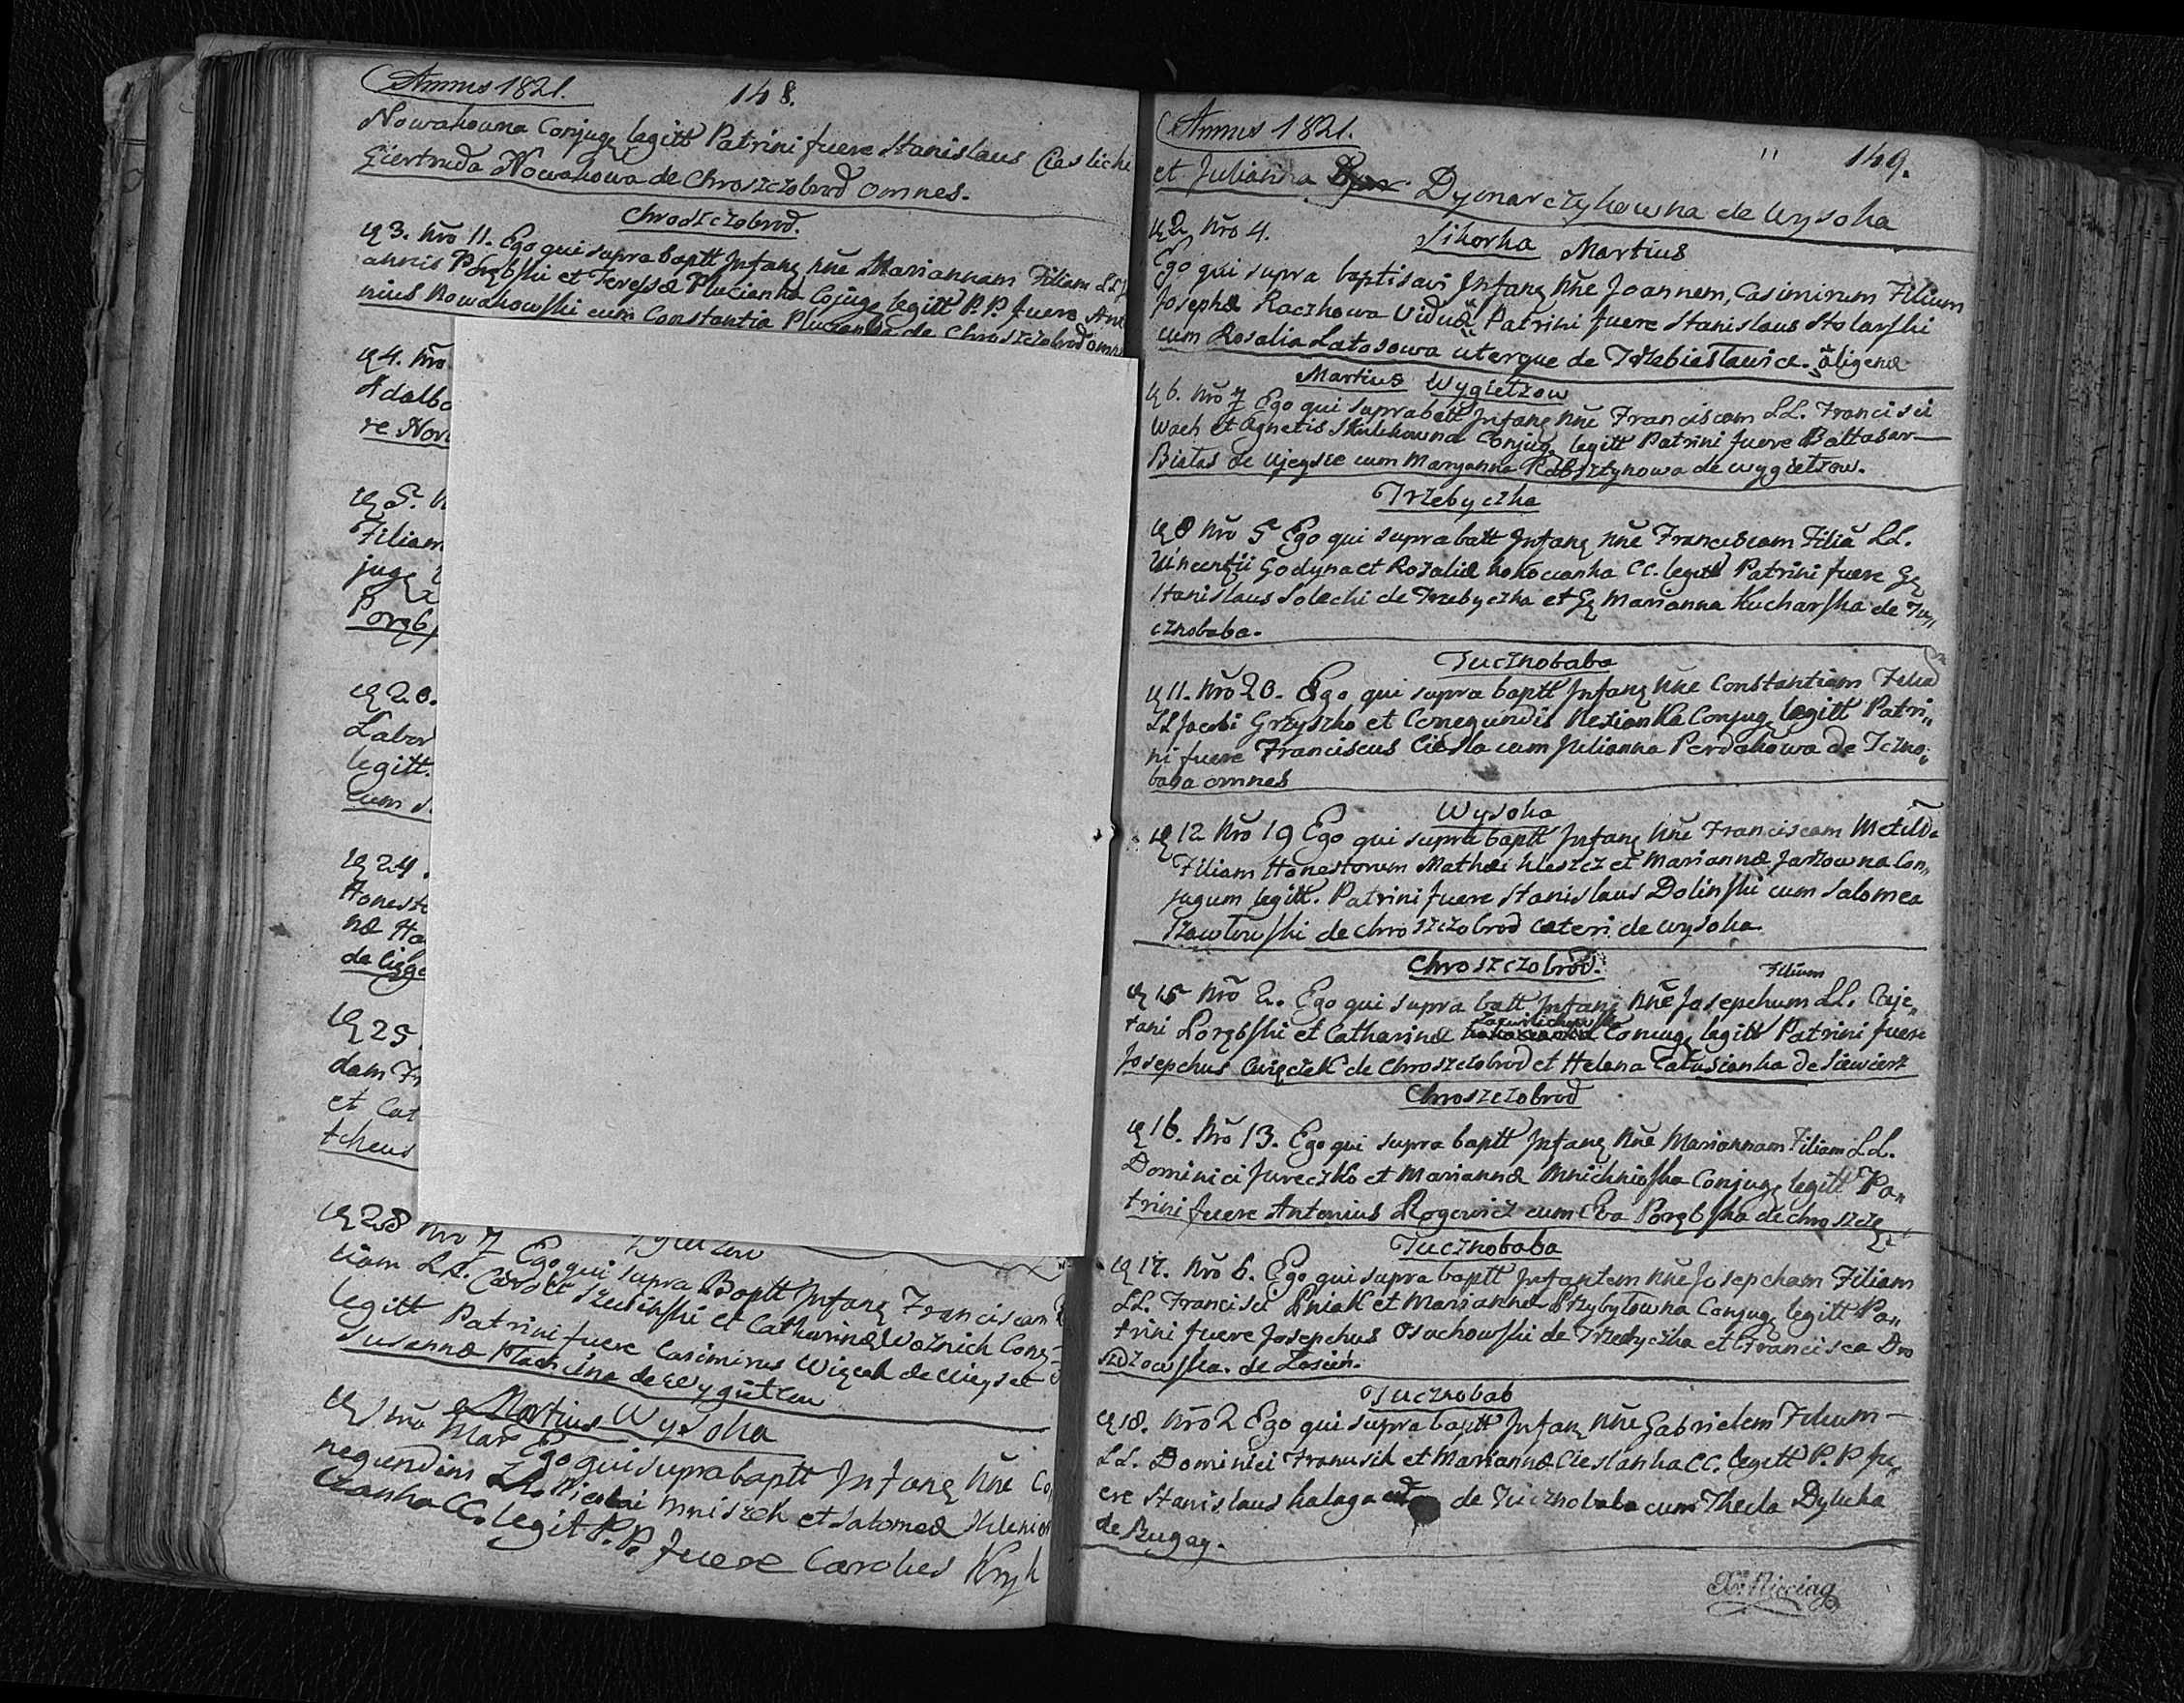 Annus 1821. 148.
Nowakowna Conjug legitt Patrini fuere Stanislaus Cieslick
Giertruda Nowakowa de Chroszczobrod omnes.
Chroszczobrod.
3. Nro 11. Ego qui supra baptt Infan Nne Mariannam Filiam LL J
annis Porębski et Teressæ Plucianka Cojug legitt P.P. fuere Ant
nius Nowakowski cum Constantia Plucianka de Chroszczobrod omn
4. Nro
Adalbe
re Now
5. N
Filiam
jug
Porębs
20.
Labor
legitt.
cum S
24.
Honest
næ Ha
de Cięgo
25
dam Fr
et Cat
theus
28 Nro 7 Ego qui supra Baptt Infan Franciscam
tiam LL. Caroli et Catharinæ Woznich Conj
legitt Patrini fuere Casimirus Więcek de Ujeysce
Susanna de Wygiełzow
Martius Wysoka
1 Nro Ego qui supra baptt Infan Nne Co
negundim LL. Nicolai Mniszek et Salomeæ
CC. legit P.P. fuere Carolus Kryk
Annus 1821. 149.
et Julianna Dymarczykowna de Wysoka
Sikorka Martius
2 Nro 4.
Ego qui supra baptisavi Infan Nne Joannem, Casimirum Filium
Josepha Raczkowa Viduæ Patrini fuere Stanislaus Stolarski
cum Rosalia Latosowa uterque de Trzebiesławice. aligenæ
Martius Wygiełzow
6. Nro 7 Ego qui supra batt Infan Nne Franciscam LL. Francisci
Wach et Agnetis Skulikowna Conjug legitt Patrini fuere Baltasar
Białas de Ujeysce cum Maryanna Rabsztynowa de Wygiełzow.
Trzebyczka
8 Nro 5 Ego qui supra batt Infan Nne Franciscam Filia LL.
Vincentii Godyna et Rozaliæ Kokocianka CC. legitt Patrini fuere G
Stanislaus Solecki de Trzebyczka et G Marianna Kucharska de Tu„
cznobaba.
Tucznobaba
11. Nro 20. Ego qui supra baptt Infan Nne Constantiam Filia
LL Jacobi Grzyszka et Conegundis Conjug legitt Patri„
ni fuere Franciscus Ciesla cum Julianna Perdakowa de Tczno„
baba omnes
Wysoka
12 Nro 19 Ego qui supra baptt Infan Nne Franciscam Metild
Filiam Honestorum Mathæi Kleszcz et Mariannæ Jarzowna Con„
jugum legitt. Patrini fuere Stanislaus Dolinski cum Salomea
Szawłowski de Chroszczobrod cæteri de Wysoka
Chroszczobrod.
Filium
15 Nro 2. Ego qui supra batt Infan Nne Josephum LL. Caje„
tani Porębski et Catharinæ Conjug legitt Patrini fuere
Josephus Cwięczek de Chroszczobrod et Helena Całusianka de Siewierz
Chroszczobrod
16. Nro 13. Ego qui supra baptt Infan Nne Mariannam Filiam LL.
Dominici Jureczko et Mariannæ Mnichnioska Conjug legitt Pa„
trini fuere Antonius Rogowicz cum Eva Porębska de Chroszcz
Tucznobaba
17. Nro 6. Ego qui supra baptt Infantem Nne Josepham Filiam
LL. Francisci Pniak et Mariannæ Przybyłowna Conjug legitt Pa„
trini fuere Josephus Osuchowski de Trzebyczka et Francisca Dro
szdzowska. de Łosień.
Tucznobab
18. Nro 2 Ego qui supra baptt Infan Nne Gabrielem Filium
LL. Dominici Franusik et Mariannæ Cieslanka CC. legitt P.P fu„
ere Stanislaus Kalaga de Tucznobaba cum Thecla Dylicka
de Bugay.